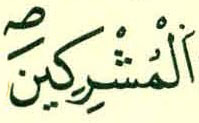 اَ۬لْمُشْرِكِينَۖ